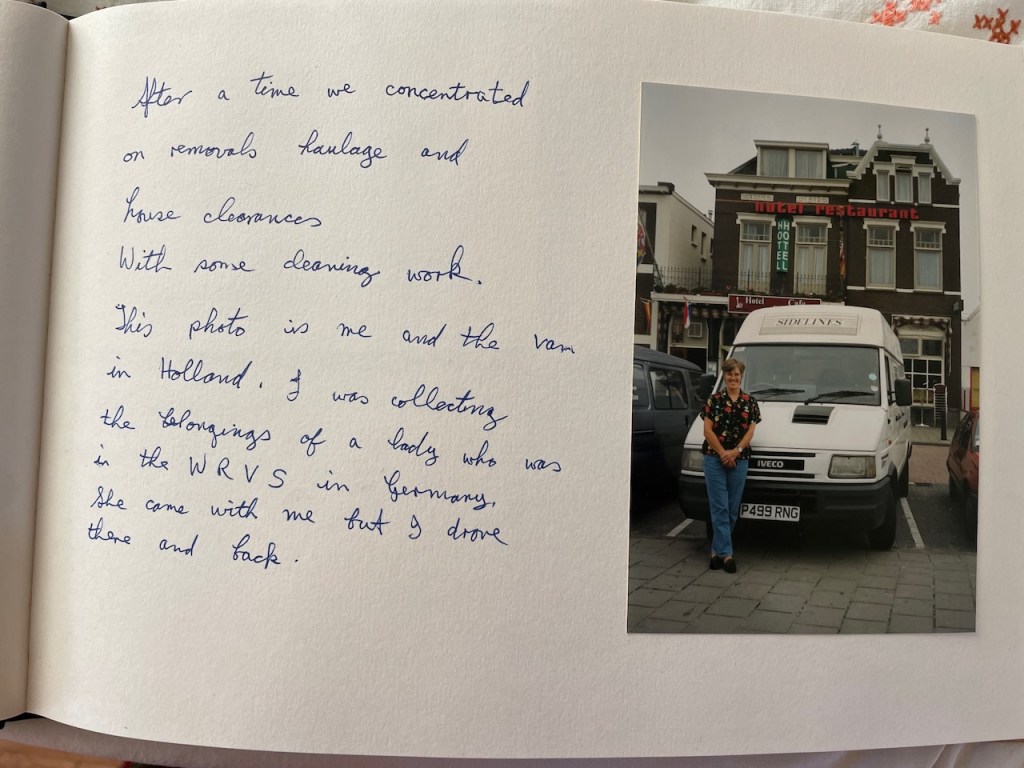 After a time we concentrated
on removals haulage and
house clearances
With some cleaning work.
This photo is me and the van
in Holland. I was collecting
the belongings of a lady who was
in the WRVS in Germany,
She came with me but I drove
there and back.
hotel restaurant
HOTEL
HOTEL
Hotel Cafe
SIDELINES
IVECO
P499 RNG